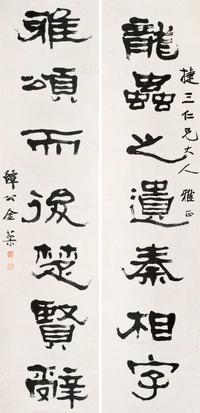 龍蟲之遺秦相字
捷三仁兄大人 雅正
雅頌而後楚賢辭
鞾公金棻